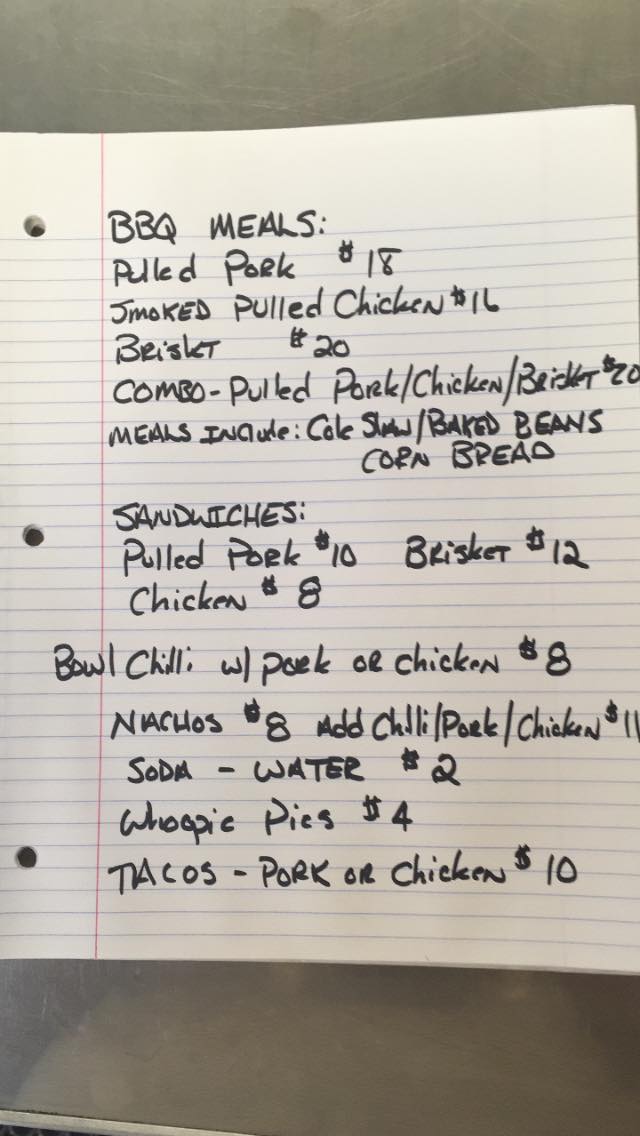 BBQ MEALS:
Pulled Pork $18
Smoked Pulled Chicken $16
Brisket $20
Combo-Pulled Pork/Chicken/Brisket $20
Meals Include: Cole Slaw/Baked Beans
Corn Bread
SANDWICHES:
Pulled Pork $10 Brisket $12
Chicken $8
Bowl Chilli w/ Pork or Chicken $8
Nachos $8 Add Chilli/Pork/Chicken $11
Soda - Water $2
Whoopie Pies $4
Tacos - Pork or Chicken $10